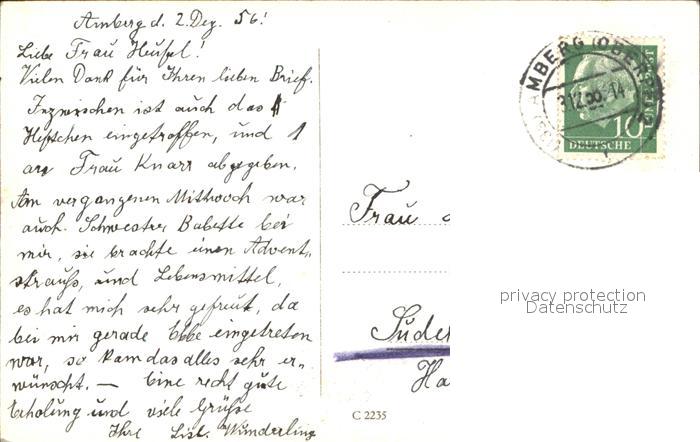 Amberg d. 2. Dez. 56!
Liebe Frau Heufel!
Vielen Dank für Ihren lieben Brief.
Inzwischen ist auch das
Heftchen eingetroffen, und
an Frau Knarr abgegeben.
Am vergangenen Mittwoch war
auch Schwester Babette bei
mir, sie brachte einen Advent-
strauß, und Lebensmittel,
es hat mich sehr gefreut, da
bei mir gerade Ebbe eingetreten
war, so kam das alles sehr er-
wünscht. — Eine recht gute
Erholung und viele Grüße
Ihre Wunderling
AMBERG (OBERPF
3.12.56.-14
10
DEUTSCHE
BUNDESPOST
Frau
Süde
Ha
C 2235
privacy protection
Datenschutz